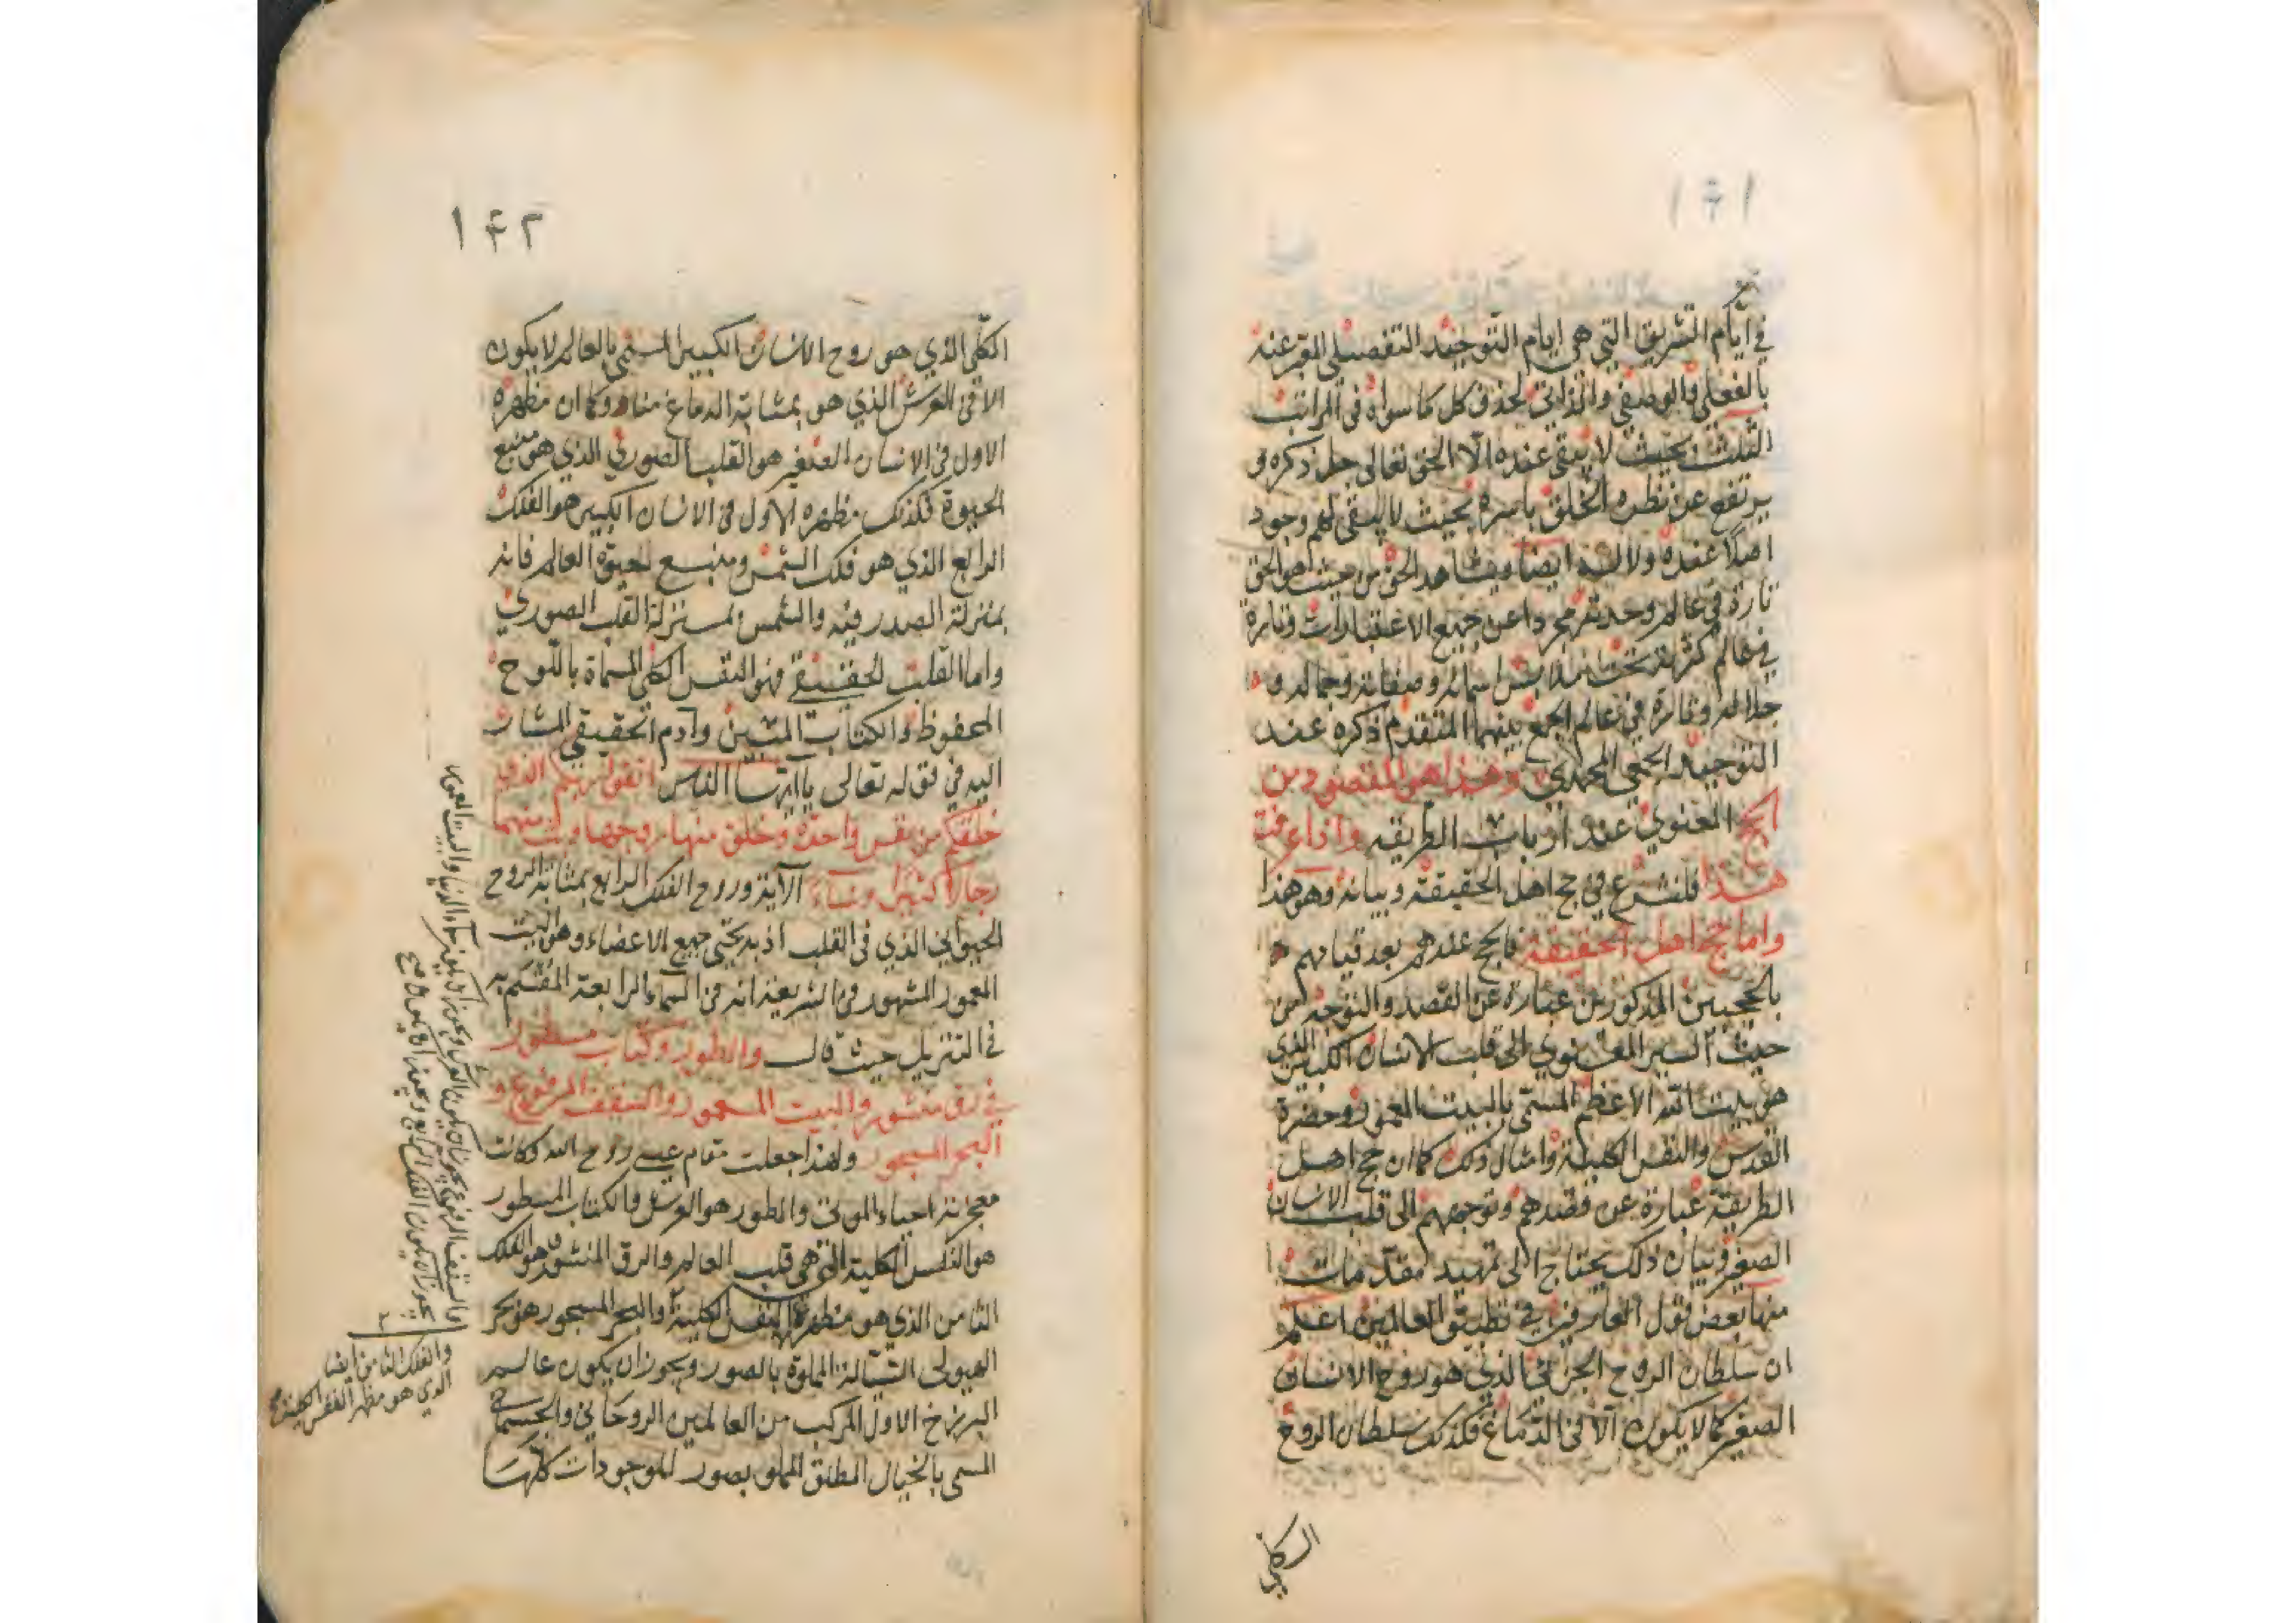 ١۴١
في ايام التشريق التي هي ايام التوحيد التفصيلي المعبر عنه
بالفعلي والوصفي والذاتي لحذف كل ما سواه في المراتب
الثلث بحيث لا يبقى عنده الّا الحق تعالى جل ذكره و
يرتفع عن نظره الخلق باسره بحيث لا يبقى لهم وجود
اصلا عنده ولا له ايضا ويشاهد الحق من حيث هو الحق
تارة في عالم وحدته مجردا عن جميع الاعتبارات وتارة
في عالم كثرته تحت ملابس اسمائه وصفاته وجماله و
جلاله وتارة في عالم الجمع بينهما المتقدم ذكره عند
التوحيد الجمعي المحمدي وهذا هو المقصود من
الحج المعنوي عند ارباب الطريقه واذا عرفت
هذا فلنشرع في حج اهل الحقيقة وبيانه وهو هذا
واما حج اهل الحقيقة فالحج عندهم بعد قيامهم
بالحجيين المذكورين عبارة عن القصد والتوجه من
حيث السير المعنوي الى قلب الانسان الكبير الذي
هو بيت الله الاعظم المسمّى بالبيت المعمور وحضرة
القدس والنفس الكلية وامثال ذلك كما ان حج اهل
الطريقة عبارة عن قصدهم وتوجههم الى قلب الانسان
الصغير وبيان ذلك يحتاج الى تمهيد مقدمات
منها بعض قول العارفين في تطبيق العالمين اعلم
ان سلطان الروح الجزئي الذي هو روح الانسان
الصغير كما لا يكون الّا في الدماغ فكذلك سلطان الروح
الكلي
١۴٢
الكلّي الذي هو روح الانسان الكبير المسمّى بالعالم لا يكون
الا في العرش الذي هو بمثابة الدماغ منا وكما ان مظهره
الاول في الانسان الصغير هو القلب الصوري الذي هو منبع
الحيوة فكذلك مظهره الاول في الانسان الكبير هو الفلك
الرابع الذي هو فلك الشمس ومنبع لحيوة العالم فانه
بمنزلة الصدر فيه والشمس بمنزلة القلب الصوري
واما القلب الحقيقي فهو النفس الكلي المسماة باللوح
المحفوظ والكتاب المبين وآدم الحقيقي المشار
اليه في قوله تعالى يا ايها الناس اتقوا ربكم الذي
خلقكم من نفس واحدة وخلق منها زوجها وبث منهما
رجالا كثيرا ونساء الآية وروح الفلك الرابع بمثابة الروح
الحيواني الذي في القلب اذ به يحيى جميع الاعضاء وهو البيت
المعمور المشهور في الشريعة انه في السماء الرابعة المقسّم به
في التنزيل حيث قال والطور وكتاب مسطور
في رق منشور والبيت المعمور والسقف المرفوع و
البحر المسجور ولهذا جعلت مقام عيسى روح الله وكانت
معجزته احياء الموتى والطور هو العرش والكتاب المسطور
هو النفس الكلية التي هي قلب العالم والرق المنشور هو الفلك
الثامن الذي هو مظهر النفس الكلية والبحر المسجور هو بحر
الهيولى السّيالة المملوة بالصور ويجوز ان يكون عالم
البرزخ الاول المركب من العالمين الروحاني والجسماني
المسمى بالخيال المطلق المملو بصور الموجودات كلّها
والسقف المرفوع يجوز ان يكون العرش ويجوز ان يكون سماء الدنيا والبيت المعمور
يجوز ان يكون الفلك الرابع
والفلك الثامن ايضا
الذي هو مظهر النفس الكلية